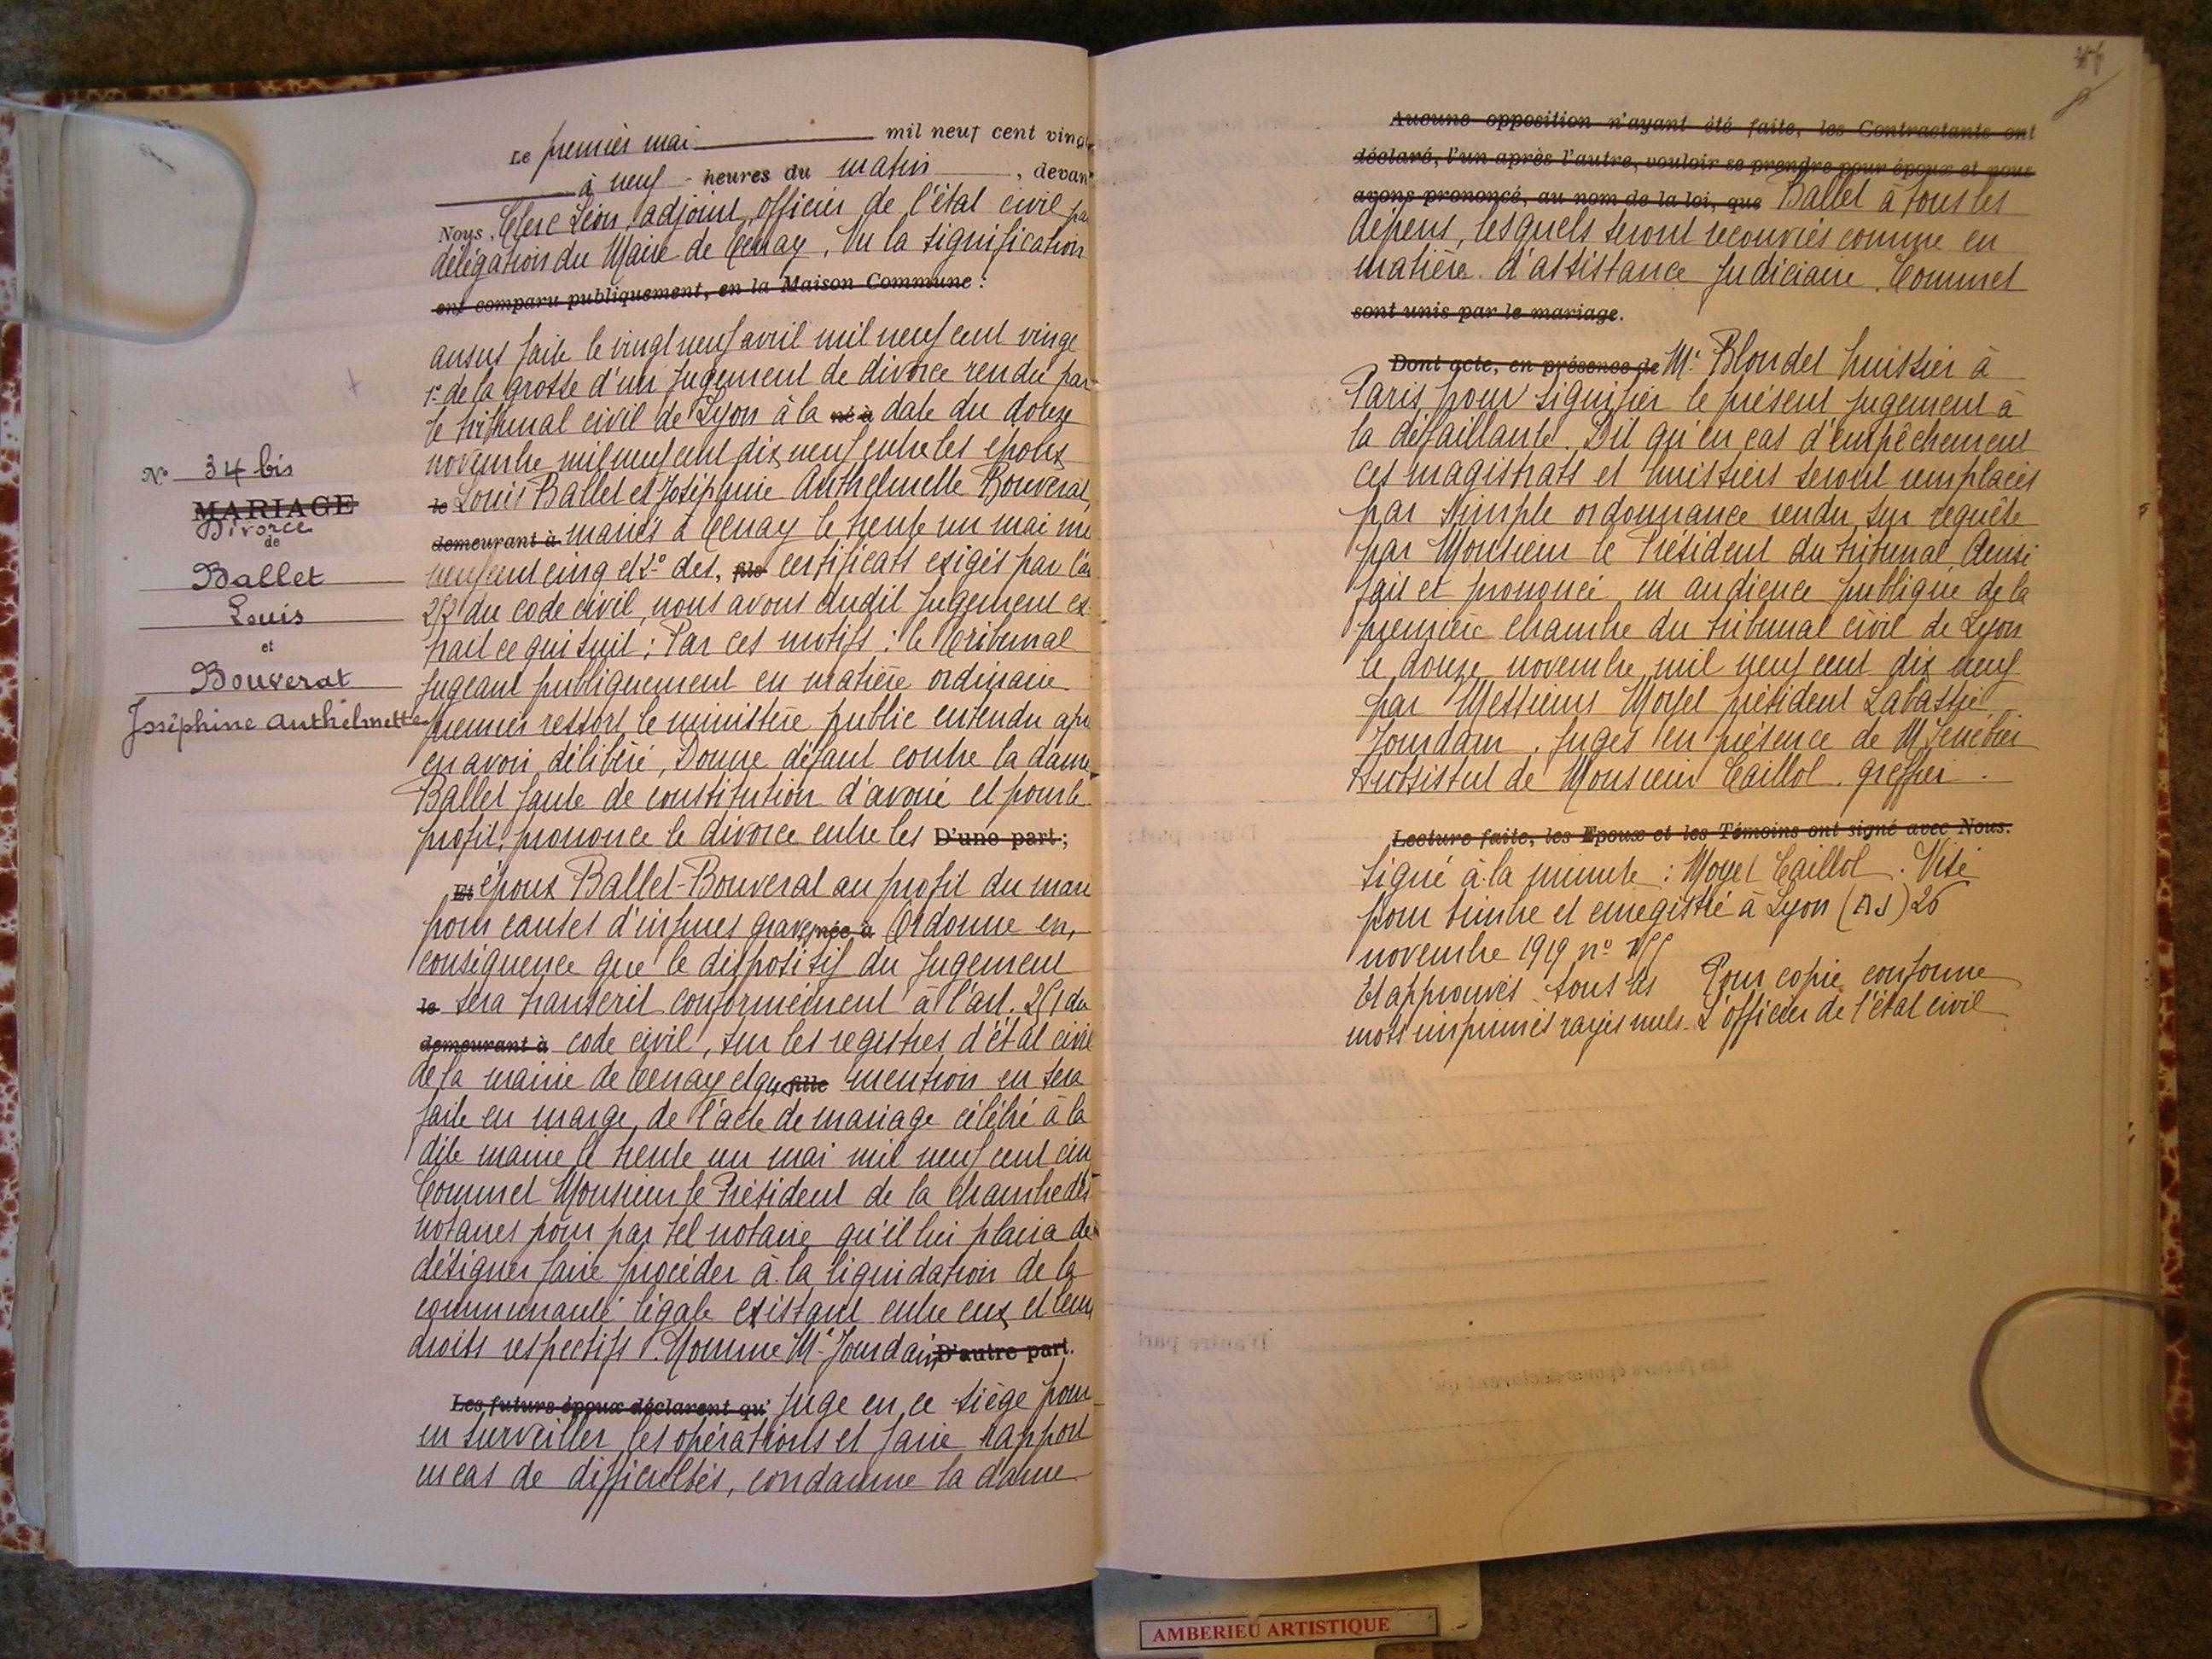 N° 34 bis
MARIAGE
Divorce
de
Ballet
Louis
et
Bouverat
Joséphine Anthelmette
Le premier mai mil neuf cent vingt
à neuf heures du matin, devant
Nous, Clerc Léon, adjoint, officier de l'état civil par
délégation du Maire de Tenay, Vu la signification
ont comparu publiquement, en la Maison Commune :
ausus faite le vingt neuf avril mil neuf cent vingt
1° de la grosse d'un jugement de divorce rendu par
le tribunal civil de Lyon à la né à date du douze
novembre mil neuf cent dix neuf entre les époux
le Louis Ballet et Joséphine Anthelmette Bouverat,
demeurant à mariés à Tenay le trente un mai mil
neuf cent cinq et 2° des, fils certificats exigés par l'art
252 du code civil, nous avons dudit jugement ex-
trait ce qui suit : Par ces motifs : le Tribunal
jugeant publiquement en matière ordinaire
premier ressort, le ministère public entendu après
en avoir délibéré, Donne défaut contre la dame
Ballet faute de constitution d'avoué et pour le
profit, prononce le divorce entre les D'une part ;
Et époux Ballet-Bouverat au profit du mari
pour causes d'injures graves née à Ordonne en,
conséquence que le dispositif du jugement
le sera transcrit conformément à l'art. 251 du
demeurant à code civil, sur les registres d'état civil
de la mairie de Tenay et que fille mention en sera
faite en marge de l'acte de mariage célébré à la
dite mairie le trente un mai mil neuf cent cinq
Commet Monsieur le Président de la chambre des
notaires pour par tel notaire qu'il lui plaira de
désigner faire procéder à la liquidation de la
communauté légale existant entre eux et leurs
droits respectifs. Nomme Mr Jourdain, D'autre part.
Les futurs époux déclarent qu' juge en ce siège pour
en surveiller les opérations et faire rapport
en cas de difficultés, condamne la dame
Aucune opposition n'ayant été faite, les Contractants ont
déclaré, l'un après l'autre, vouloir se prendre pour époux et nous
avons prononcé, au nom de la loi, que Ballet à tous les
dépens, lesquels seront recouvrés comme en
matière d'assistance judiciaire. Commet
sont unis par le mariage.
Dont acte, en présence de Me Blondet huissier à
Paris pour signifier le présent jugement à
la défaillante. Dit qu'en cas d'empêchement
ces magistrats et huissiers seront remplacés
par simple ordonnance rendu sur requête
par Monsieur le Président du tribunal. Ainsi
fait et prononcé en audience publique de la
première chambre du tribunal civil de Lyon
le douze novembre mil neuf cent dix neuf
par Messieurs Moyet président Labastie
Jourdain, juges en présence de Mr
substitut de Monsieur Caillol. greffier.
Lecture faite, les Epoux et les Témoins ont signé avec Nous.
signé à la minute : Moyet Caillol. Visé
pour timbre et enregistré à Lyon (AJ) 26
novembre 1919 n°
Et approuvés tous les Pour copie conforme
mots imprimés rayés nuls. L'officier de l'état civil
AMBERIEU ARTISTIQUE